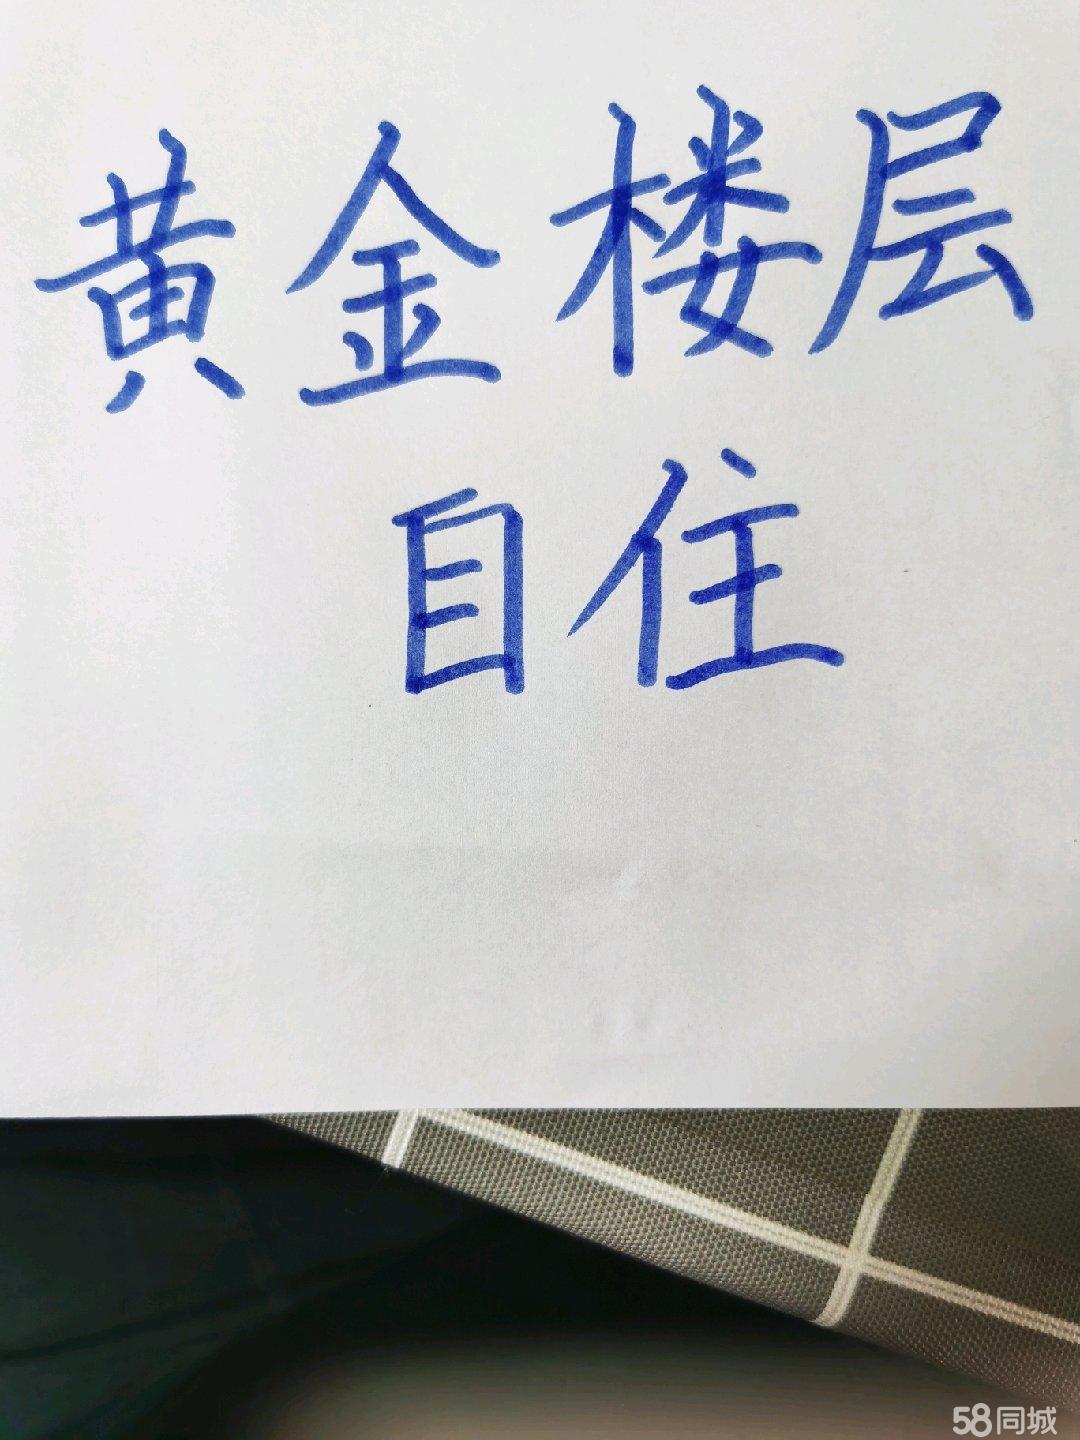 黄金楼层
自住
58同城